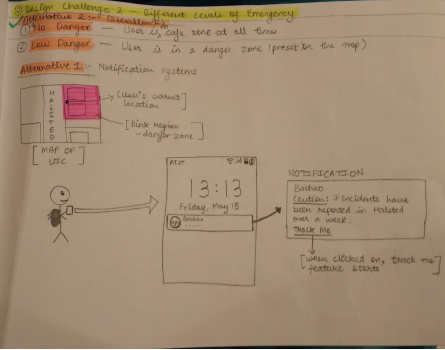 ③ Design Challenge 2 - Different Levels of Emergency
Alternative 2:-
① No Danger — User is safe zone at all time
② Low Danger — User is in a danger zone (preset on the map)
Alternative 1:- Notification systems
HALSTED
[User's current location]
[Pink region - danger zone]
[MAP OF UIC]
AT&T
13:13
Friday, May 15
Bachao
NOTIFICATION
Bachao
Caution: 7 Incidents have
been reported in Halsted
over a week.
Track Me
[when clicked on, track me
feature starts]